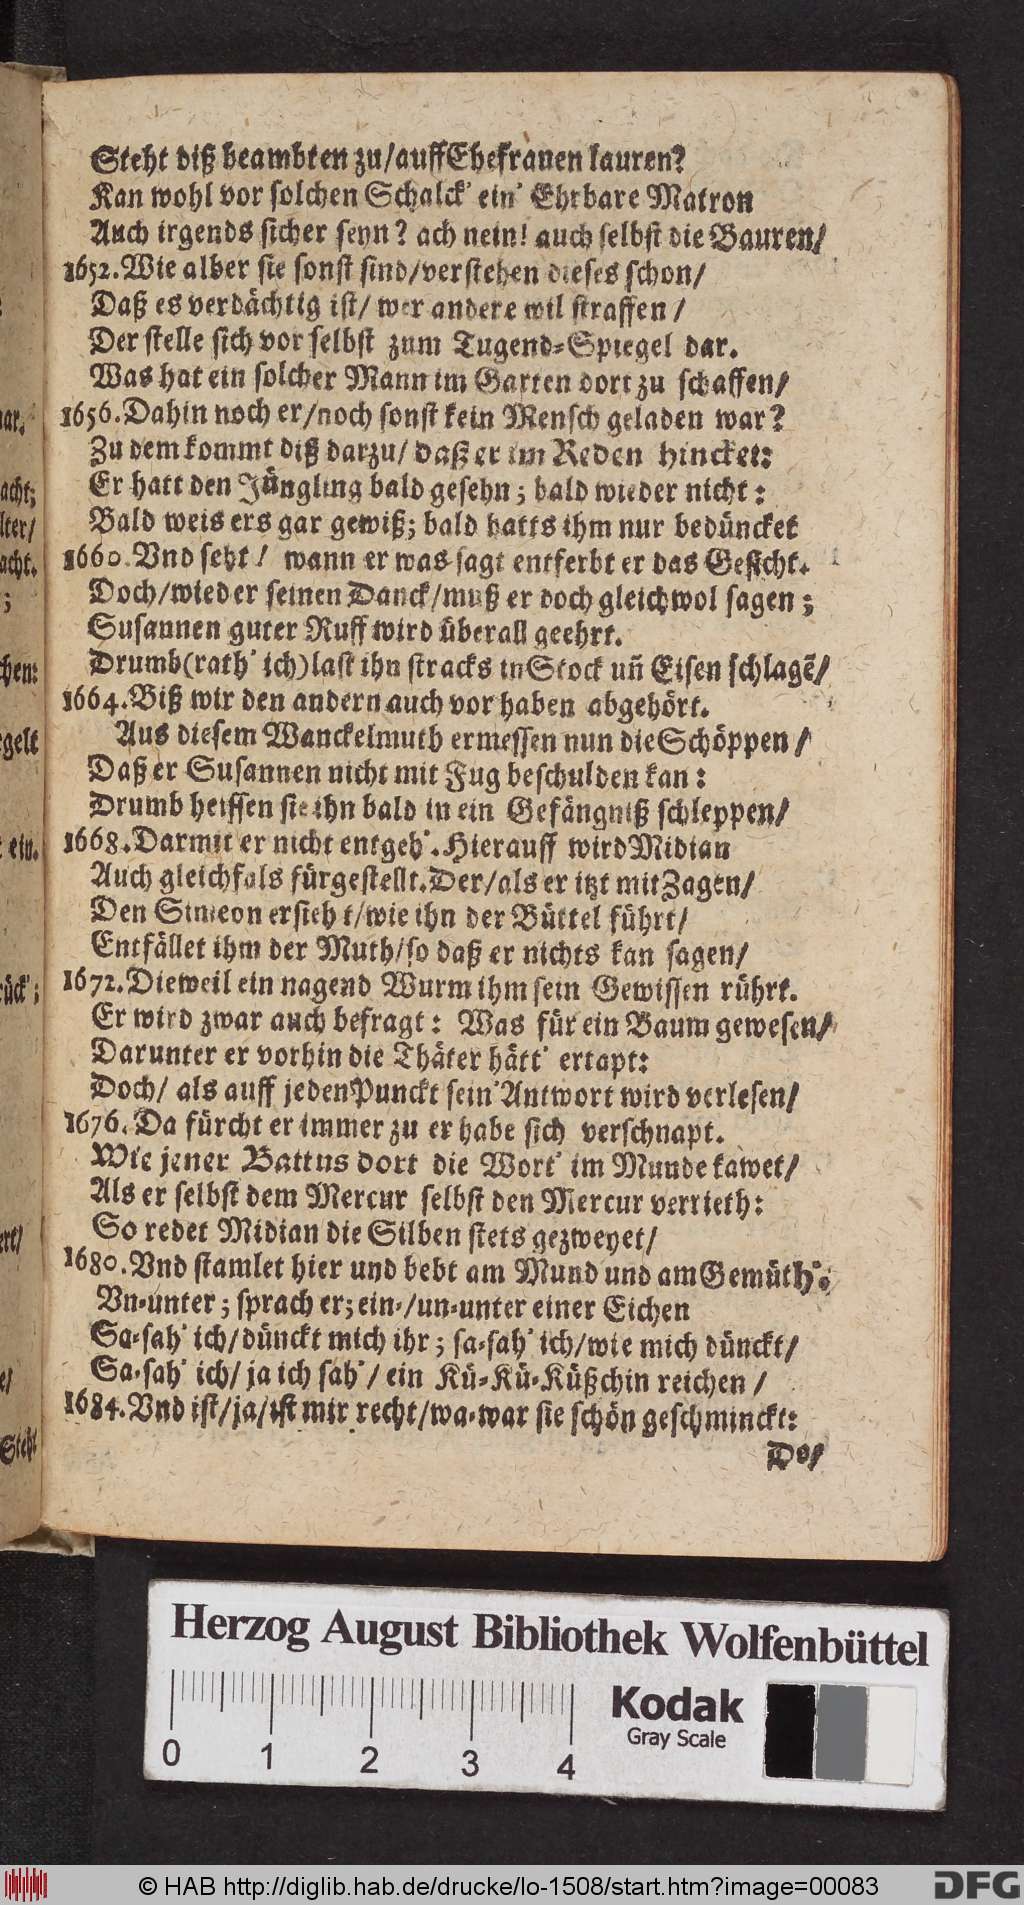 Steht diß beambten zu/auff Ehefrauen lauren?
Kan wohl vor solchen Schalck' ein' Ehrbare Matron
Auch irgends sicher seyn? ach nein! auch selbst die Bauren/
1652. Wie alber sie sonst sind/verstehen dieses schon/
Daß es verdächtig ist/ wer andere wil straffen /
Der stelle sich vor selbst zum Tugend-Spiegel dar.
Was hat ein solcher Mann im Garten dort zu schaffen/
1656. Dahin noch er/noch sonst kein Mensch geladen war?
Zu dem kommt diß darzu/ daß er im Reden hincket:
Er hatt den Jüngling bald gesehn; bald wieder nicht:
Bald weis ers gar gewiß; bald hatts ihm nur bedüncket
1660. Vnd seht! wann er was sagt entferbt er das Gesicht.
Doch/wieder seinen Danck/muß er doch gleichwol sagen;
Susannen guter Ruff wird überall geehrt.
Drumb(rath' ich)last ihn stracks in Stock uñ Eisen schlagẽ/
1664. Biß wir den andern auch vor haben abgehört.
Aus diesem Wanckelmuth ermessen nun die Schöppen /
Daß er Susannen nicht mit Fug beschulden kan:
Drumb heissen sie ihn bald in ein Gefängniß schleppen/
1668. Darmit er nicht entgeh'. Hierauff wird Midian
Auch gleichfals fürgestellt. Der/als er itzt mit Zagen/
Den Simeon ersieht/wie ihn der Büttel führt/
Entfället ihm der Muth/so daß er nichts kan sagen/
1672. Dieweil ein nagend Wurm ihm sein Gewissen rührt.
Er wird zwar auch befragt: Was für ein Baum gewesen/
Darunter er vorhin die Thäter hätt' ertapt:
Doch/ als auff jeden Punckt sein' Antwort wird verlesen/
1676. Da fürcht er immer zu er habe sich verschnapt.
Wie jener Battus dort die Wort' im Munde kawet/
Als er selbst dem Mercur selbst den Mercur verrieth:
So redet Midian die Silben stets gezweyet/
1680. Vnd stamlet hier und bebt am Mund und am Gemüth'.
Vn-unter; sprach er; ein-/un-unter einer Eichen
Sa-sah' ich/dünckt mich ihr; sa-sah' ich/wie mich dünckt/
Sa-sah' ich/ ja ich sah'/ ein Kü-Kü-Küßchin reichen /
1684. Vnd ist/ja/ist mir recht/wa-war sie schön geschminckt:
Do/
mar.
acht;
lter/
acht.
;
chen:
egelt
ein.
rück';
ert/
e/
Steht
Herzog August Bibliothek Wolfenbüttel
0 1 2 3 4
Kodak
Gray Scale
© HAB http://diglib.hab.de/drucke/lo-1508/start.htm?image=00083
DFG